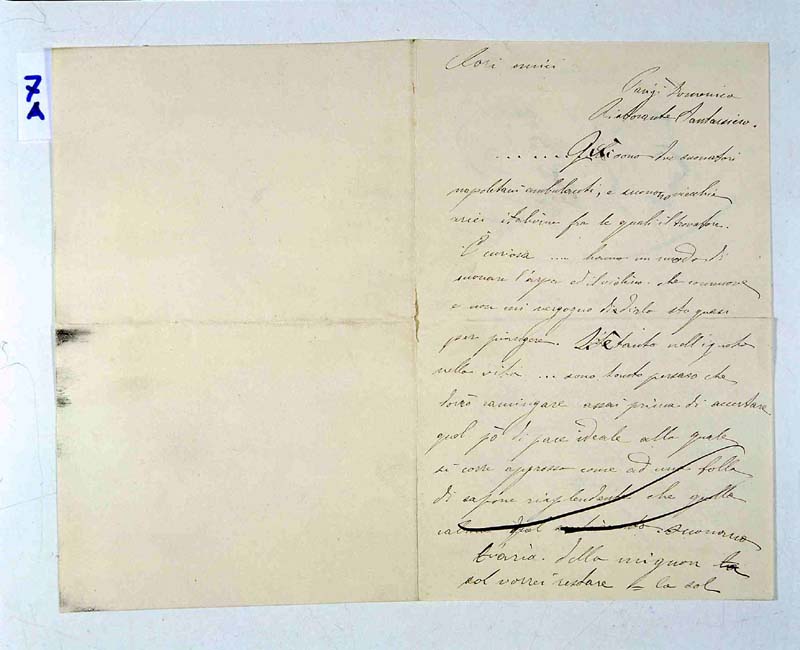 7
A
Cari amici
Parigi Domenica
Ristorante
..... Qui ci sono tre suonatori
napoletani ambulanti, e suonano vecchie
arie italiane fra le quali il trovatore.
È curiosa ... hanno un modo di
suonare l'arpa ed il violino che commuove
e non mi vergogno di dirlo sto quasi
per piangere. tanto nell'ignoto
nella vita ... sono tanto persaso che
dovrò ramingare assai prima di accertare
quel pò di pace ideale alla quale
si corre appresso come ad una bolla
di sapone risplendente che quella
quel suonano
l'aria della mignon la
sol vorrei restare = la sol